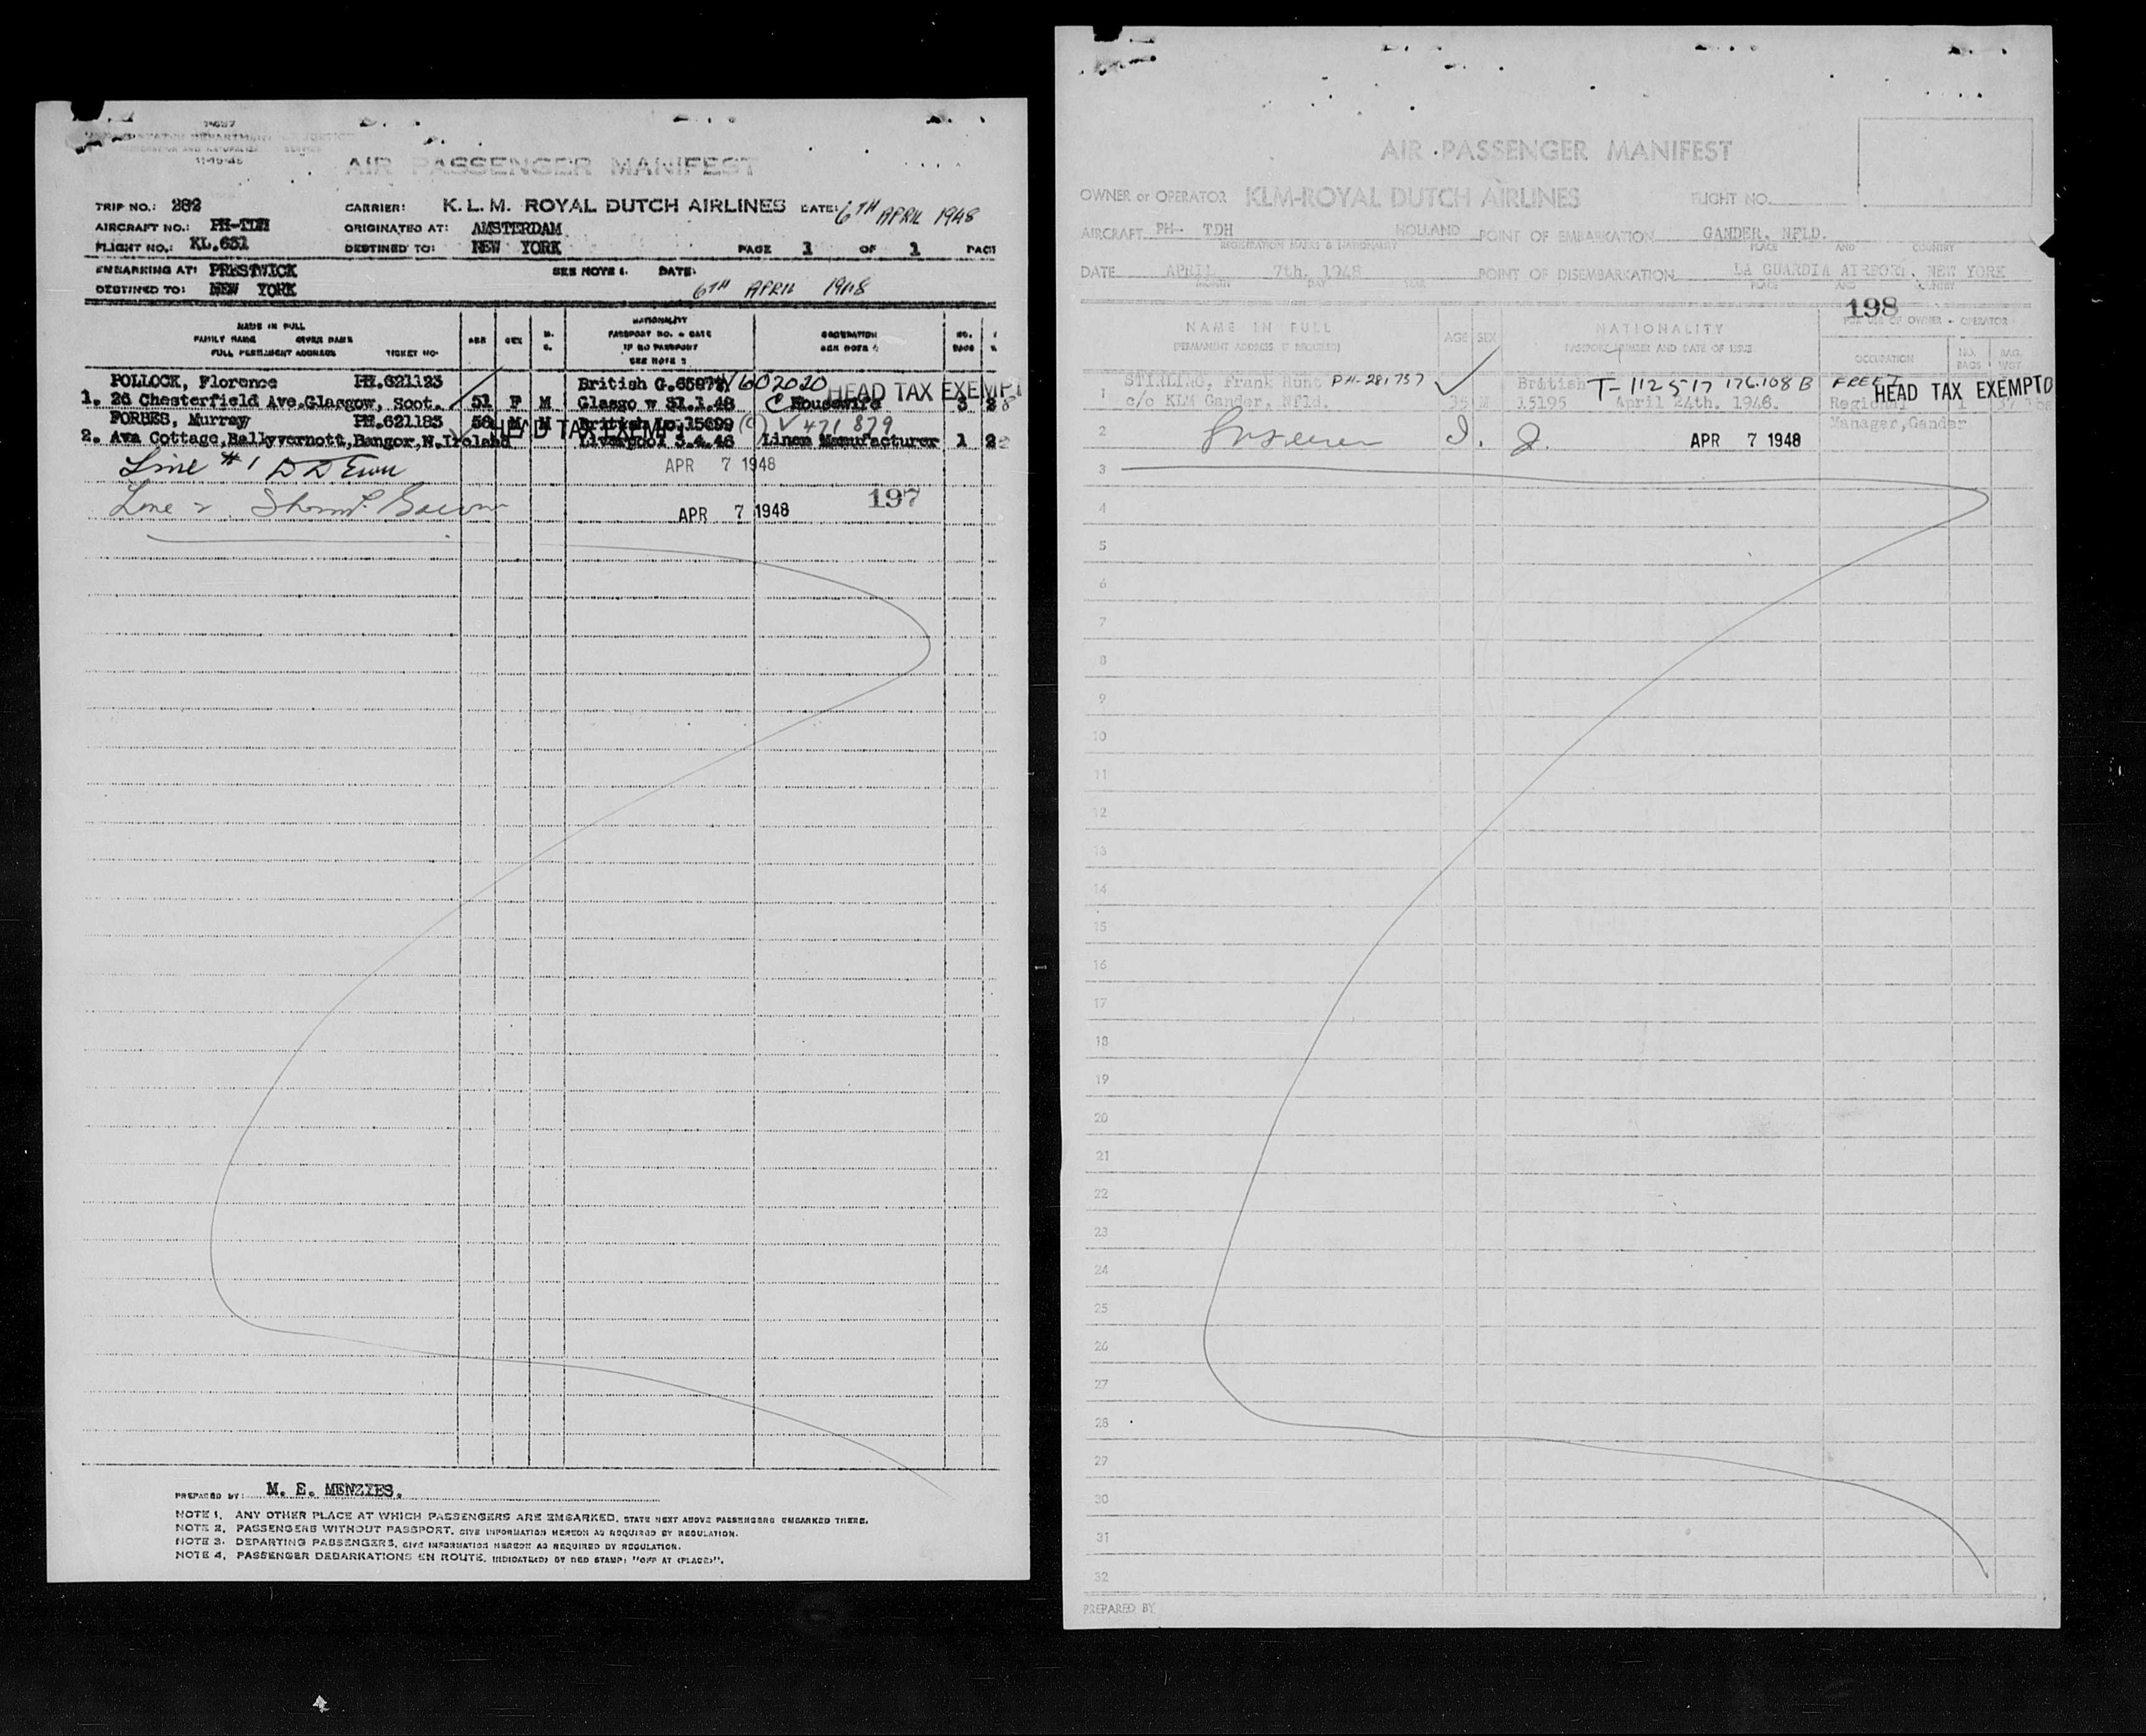 11-15-45
AIR PASSENGER MANIFEST
TRIP NO.: 282
CARRIER: K. L. M. ROYAL DUTCH AIRLINES DATE: 6TH APRIL 1948
AIRCRAFT NO.: PH-TDH
ORIGINATED AT: AMSTERDAM
FLIGHT NO.: KL.631
DESTINED TO: NEW YORK
PAGE 1 OF 1 PAGE
EMBARKING AT: PRESTWICK
SEE NOTE 1. DATE:
DESTINED TO: NEW YORK
6TH APRIL 1948
NAME IN FULL
FAMILY NAME GIVEN NAME
FULL PERMANENT ADDRESS TICKET NO.
AGE
SEX
M.
S.
NATIONALITY
PASSPORT NO. & DATE
IF NO PASSPORT
SEE NOTE 2
OCCUPATION
SEE NOTE 3
NO.
BAGS
POLLOCK, Florence PH.621123 British V602020 HEAD TAX EXEMPT
1. 26 Chesterfield Ave.Glasgow, Scot. 51 F M Glasgo w 31.1.48 Housewife 3
FORBES, Murray PH.621183 M M British 15699 (C) V 471829
HEAD TAX EXEMPT
2. Ava Cottage,Ballyvernott,Bangor,N.Ireland Liverpool 3.4.46 Linen Manufacturer 1
Line #1
APR 7 1948
Line 2.
197
APR 7 1948
PREPARED BY: M. E. MENZIES.
NOTE 1. ANY OTHER PLACE AT WHICH PASSENGERS ARE EMBARKED, STATE NEXT ABOVE PASSENGERS EMBARKED THERE.
NOTE 2. PASSENGERS WITHOUT PASSPORT, GIVE INFORMATION HEREON AS REQUIRED BY REGULATION.
NOTE 3. DEPARTING PASSENGERS, GIVE INFORMATION HEREON AS REQUIRED BY REGULATION.
NOTE 4. PASSENGER DEBARKATIONS EN ROUTE, INDICATE(D) BY RED STAMP: "OFF AT (PLACE)".
AIR PASSENGER MANIFEST
OWNER or OPERATOR KLM-ROYAL DUTCH AIRLINES FLIGHT NO.
AIRCRAFT PH- TDH HOLLAND POINT OF EMBARKATION GANDER, NFLD.
REGISTRATION MARKS & NATIONALITY PLACE AND COUNTRY
DATE APRIL 7th, 1948 POINT OF DISEMBARKATION LA GUARDIA AIRPORT, NEW YORK
MONTH DAY YEAR PLACE AND COUNTRY
198
NAME IN FULL
(PERMANENT ADDRESS IF REQUIRED)
AGE SEX
NATIONALITY
PASSPORT NUMBER AND DATE OF ISSUE
FOR USE OF OWNER - OPERATOR
OCCUPATION
NO. BAGS
BAG. WGT
1 STIRLING, Frank Hunt PH-281757 British T-112517 176.108 B HEAD TAX EXEMPT
c/o KLM Gander, Nfld. 35 M 15195 April 24th. 1946. Regional 1
Manager,Gander
2 APR 7 1948
3
4
5
6
7
8
9
10
11
12
13
14
15
16
17
18
19
20
21
22
23
24
25
26
27
28
29
30
31
32
PREPARED BY